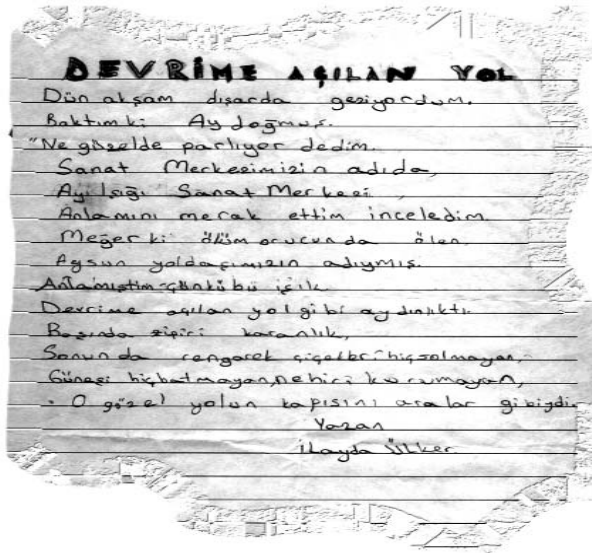 DEVRİME AÇILAN YOL
Dün akşam dışarda geziyordum.
Baktımki Ay doğmuş.
"Ne güzelde parlıyor dedim.
Sanat Merkezimizin adıda,
Ayışığı Sanat Merkezi,
Anlamını merak ettim inceledim
Meğerki ölüm orucunda ölen
Aysun yoldaşımızın adıymış.
Anlamıştım çünkü bu ışık
Devrime açılan yol gibi aydınlıktı.
Başında zifiri karanlık,
Sonunda rengarek çiçekleri hiç solmayan,
Güneşi hiç batmayan, nehiri kurumayan,
O güzel yolun kapısını aralar gibiydi.
Yazan
İlayda Ülker